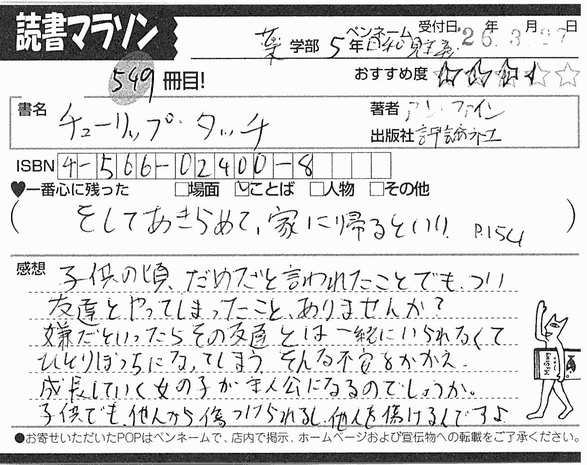 読書マラソン
薬 学部 5年 ペンネーム 日和見主義 受付日 26年 3月 27日
549 冊目! おすすめ度 ☆☆☆☆☆
書名 チューリップ・タッチ 著者 アン・ファイン
出版社 評論社
ISBN 4-566-02400-8
♥一番心に残った □場面 ☑ことば □人物 □その他
( そしてあきらめて、家に帰るといい P.154 )
感想 子供の頃、だめだと言われたことでも、つい
友達とやってしまったこと、ありませんか?
嫌だといったらその友達とは一緒にいられなくて
ひとりぼっちになってしまう そんな不安をかかえ
成長していく女の子が主人公になるのでしょうか。
子供でも、他人から傷つけられるし、他人を傷けるんですよ
●お寄せいただいたPOPはペンネームで、店内で掲示、ホームページおよび宣伝物への転載をご了承ください。